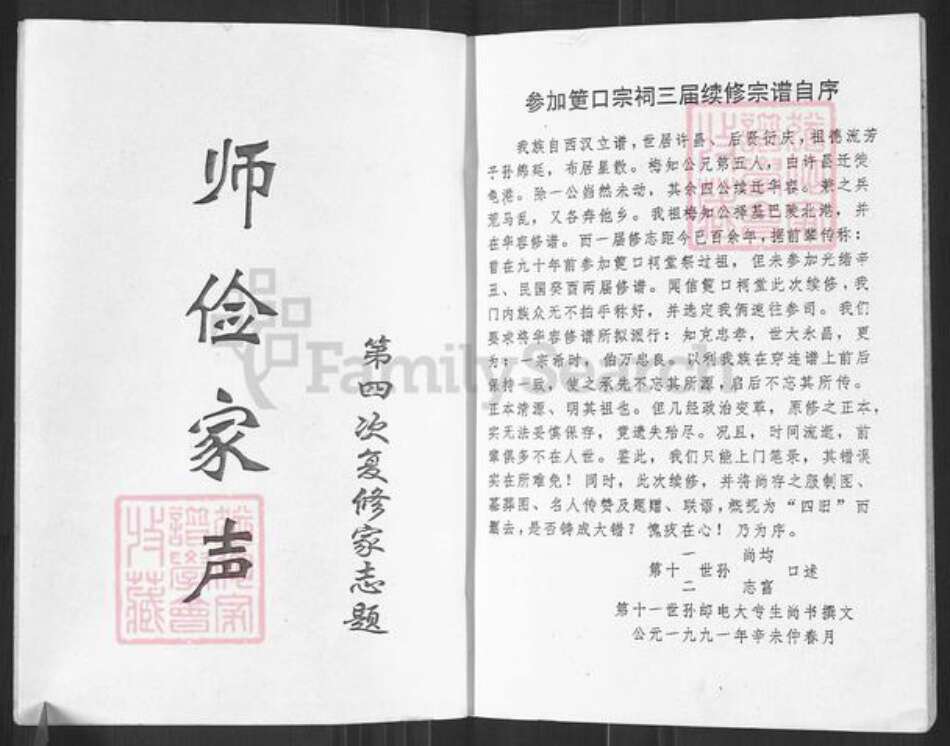 师俭家声
第四次复修家志题
参加筻口宗祠三届续修宗谱自序
我族自西汉立谱，世居许县、后贤衍庆，祖德流芳
子孙绵延，布居星散。梅知公兄弟五人，由许县迁徙
龟港。除一公岿然未动，其余四公续迁华容。兼之兵
荒马乱，又各奔他乡。我祖梅知公择基巴陵北港，并
在华容修谱。而一届修志距今已百余年，据前辈传称：
曾在九十年前参加筻口祠堂祭过祖，但未参加光绪辛
丑、民国癸酉两届修谱。闻信筻口祠堂此次续修，我
门内族众无不拍手称好，并选定我俩速往参司。我们
要求将华容修谱所拟派行：知克忠孝，世大永昌，更
为：一宗希时，伯万忠良。以利我族在穿连谱上前后
保持一致，使之承先不忘其所源，启后不忘其所传。
正本清源、明其祖也。但几经政治变革，原修之正本，
实无法妥慎保存，竟遗失殆尽。况且，时间流逝，前
辈俱多不在人世。鉴此，我们只能上门笔录，其错误
实在所难免！同时，此次续修，并将尚存之服制图、
墓葬图、名人传赞及题赠、联语，概视为“四旧”而
删去，是否铸成大错？愧疚在心！乃为序。
第十一世孙 尚均 口述
第十二世孙 志富 口述
第十一世孙邮电大专生尚书撰文
公元一九九一年辛未仲春月
FamilySearch